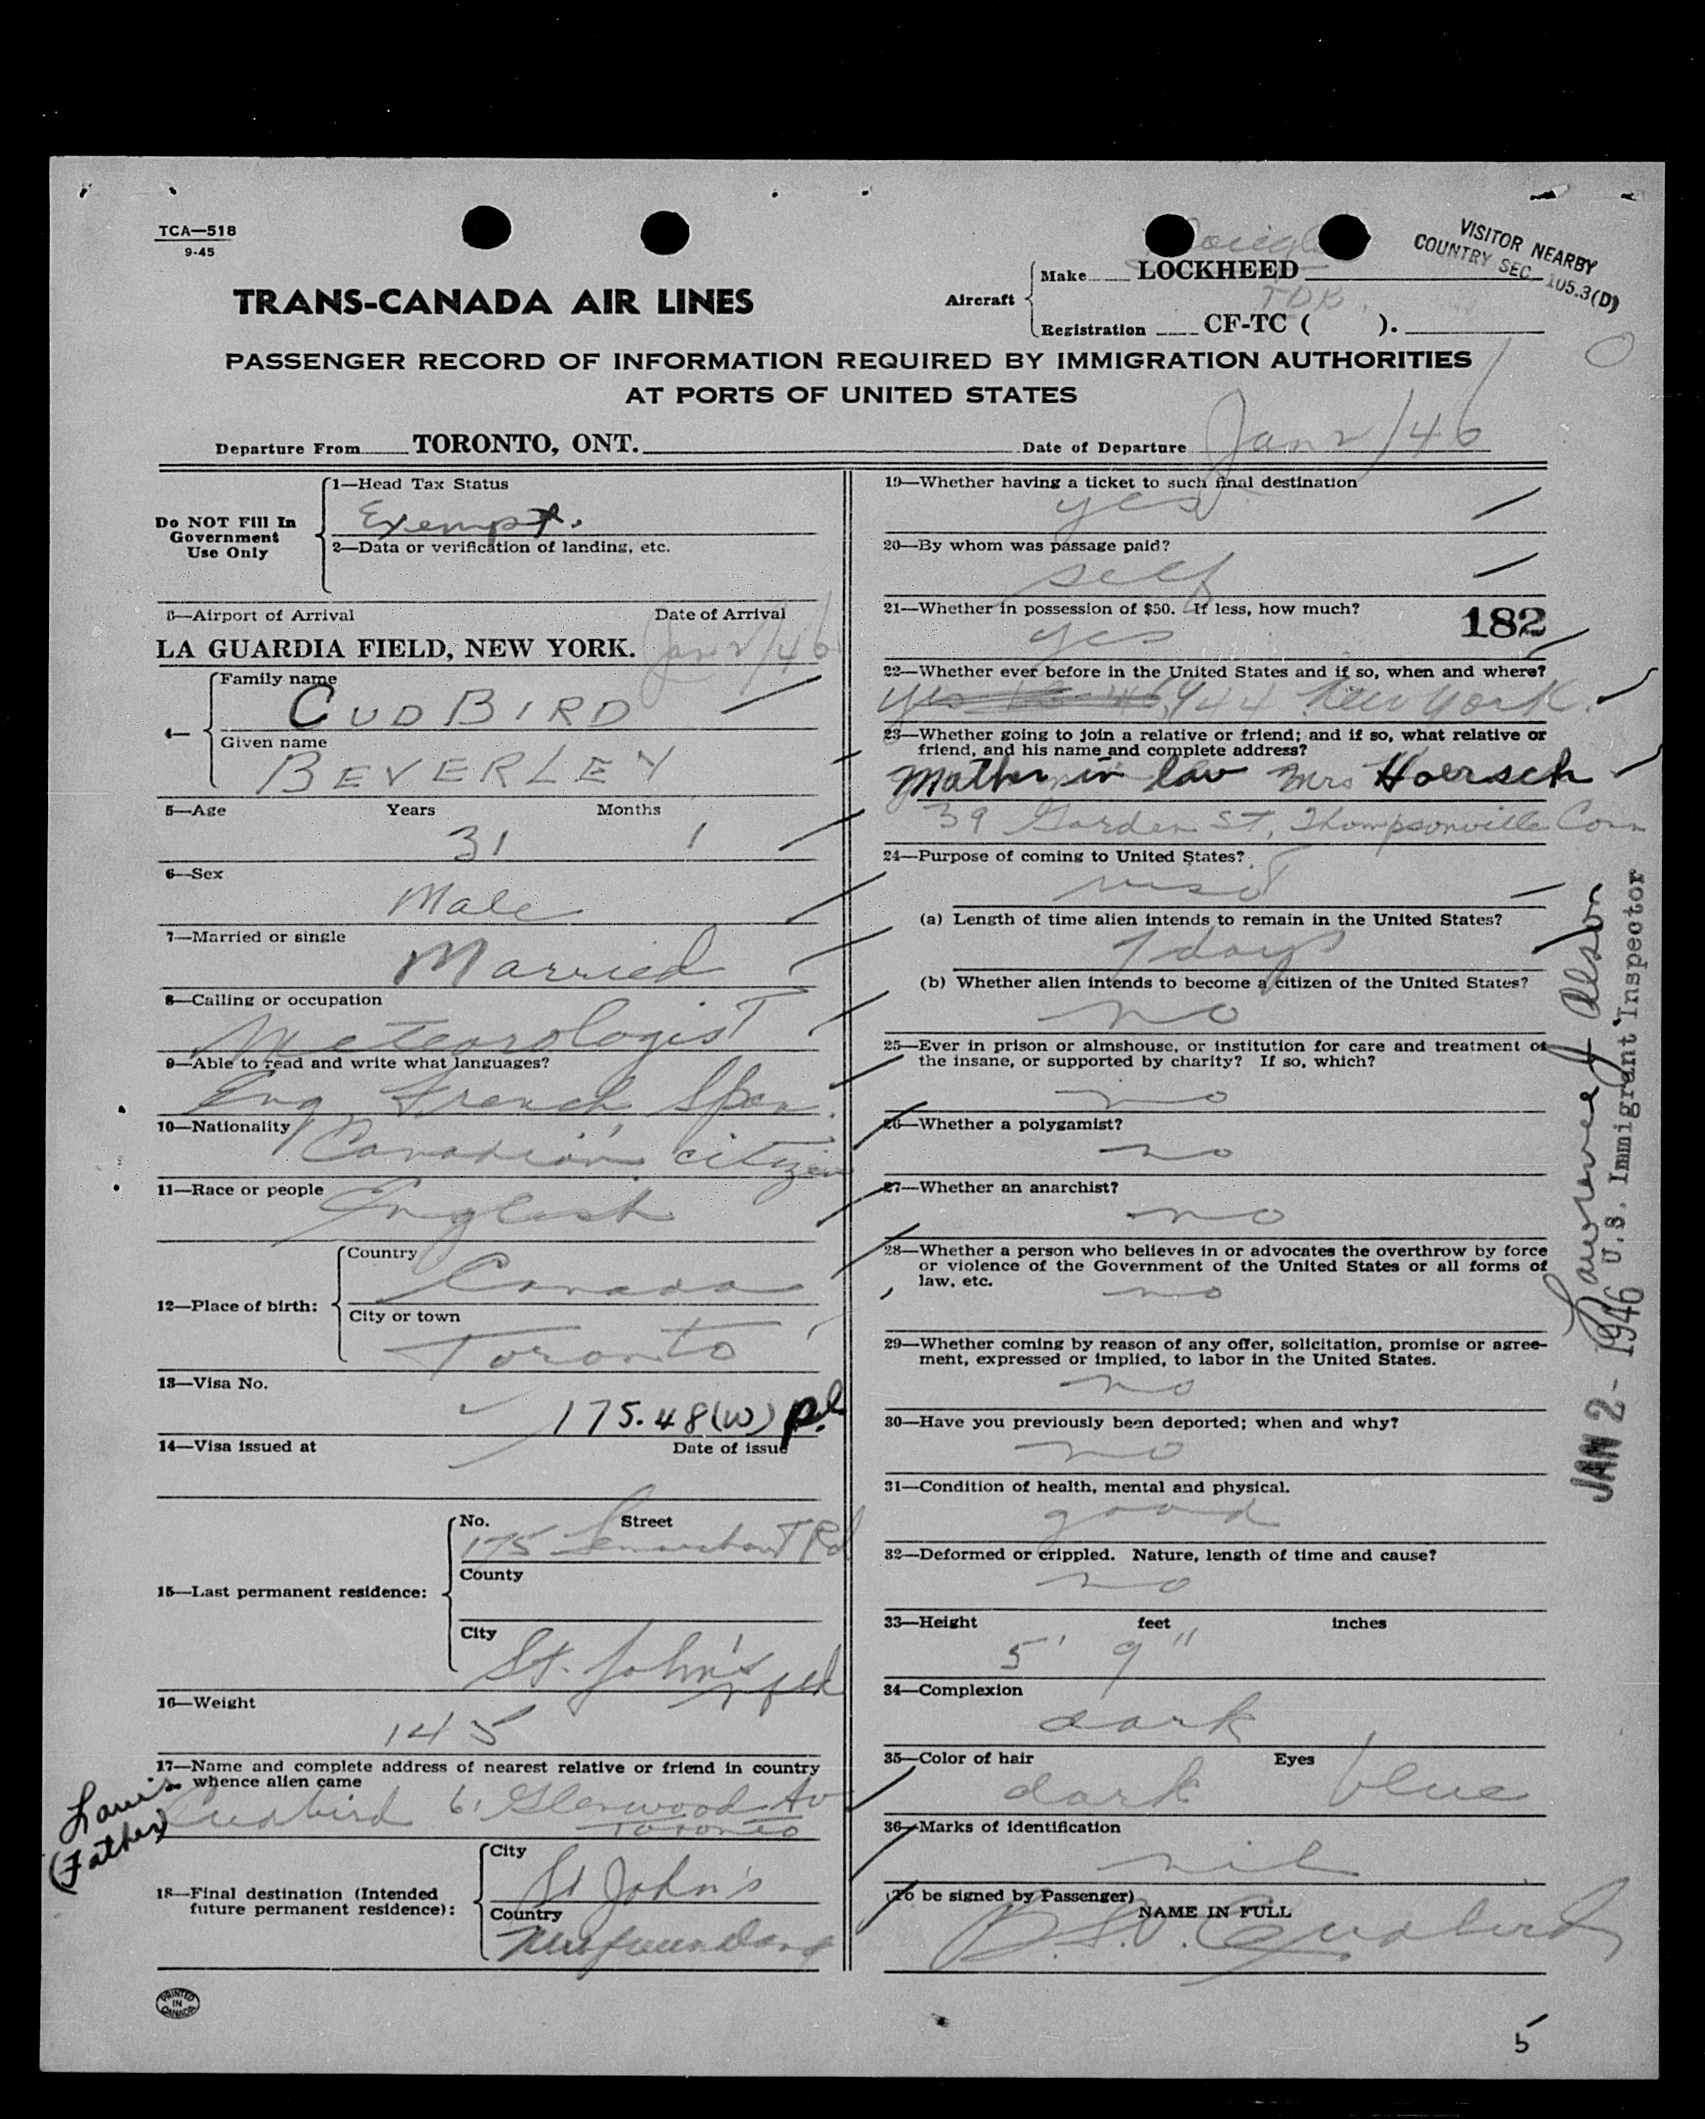 TCA—518
9-45
VISITOR NEARBY
COUNTRY SEC. 105.3(D)
TRANS-CANADA AIR LINES
Aircraft
Make LOCKHEED
Registration CF-TC ( ).
PASSENGER RECORD OF INFORMATION REQUIRED BY IMMIGRATION AUTHORITIES
AT PORTS OF UNITED STATES
Departure From TORONTO, ONT. Date of Departure Jan 2/46
Do NOT Fill In
Government
Use Only
1—Head Tax Status
Exempt.
2—Data or verification of landing, etc.
3—Airport of Arrival Date of Arrival
LA GUARDIA FIELD, NEW YORK. Jan 2/46
4— Family name
CUDBIRD
Given name
BEVERLEY
5—Age Years Months
31 1
6—Sex
Male
7—Married or single
Married
8—Calling or occupation
Meteorologist
9—Able to read and write what languages?
Eng French Span.
10—Nationality
Canadian citizen
11—Race or people
English
12—Place of birth:
Country
Canada
City or town
Toronto
13—Visa No.
175.48(W)
14—Visa issued at Date of issue
15—Last permanent residence:
No. Street
175 Lemarchant Rd
County
City
St. John's
Nfld
16—Weight
145
17—Name and complete address of nearest relative or friend in country
whence alien came
Louis
Cudbird 61 Glenwood Av
Toronto
(Father)
18—Final destination (Intended
future permanent residence):
City
St John's
Country
Newfoundland
PRINTED
IN
CANADA
19—Whether having a ticket to such final destination
yes
20—By whom was passage paid?
self
21—Whether in possession of $50. If less, how much?
yes
182
22—Whether ever before in the United States and if so, when and where?
yes 1944 New York.
23—Whether going to join a relative or friend; and if so, what relative or
friend, and his name and complete address?
Mother in law Mrs Hoersch
39 Garden St, Thompsonville Conn
24—Purpose of coming to United States?
visit
(a) Length of time alien intends to remain in the United States?
7 days
(b) Whether alien intends to become a citizen of the United States?
no
25—Ever in prison or almshouse, or institution for care and treatment of
the insane, or supported by charity? If so, which?
no
26—Whether a polygamist?
no
27—Whether an anarchist?
no
28—Whether a person who believes in or advocates the overthrow by force
or violence of the Government of the United States or all forms of
law, etc.
no
29—Whether coming by reason of any offer, solicitation, promise or agree-
ment, expressed or implied, to labor in the United States.
no
30—Have you previously been deported; when and why?
no
31—Condition of health, mental and physical.
good
32—Deformed or crippled. Nature, length of time and cause?
no
33—Height feet inches
5' 9"
34—Complexion
dark
35—Color of hair Eyes
dark blue
36—Marks of identification
nil
(To be signed by Passenger)
NAME IN FULL
B.S.V. Cudbird
JAN 2 - 1946
U.S. Immigrant Inspector
5